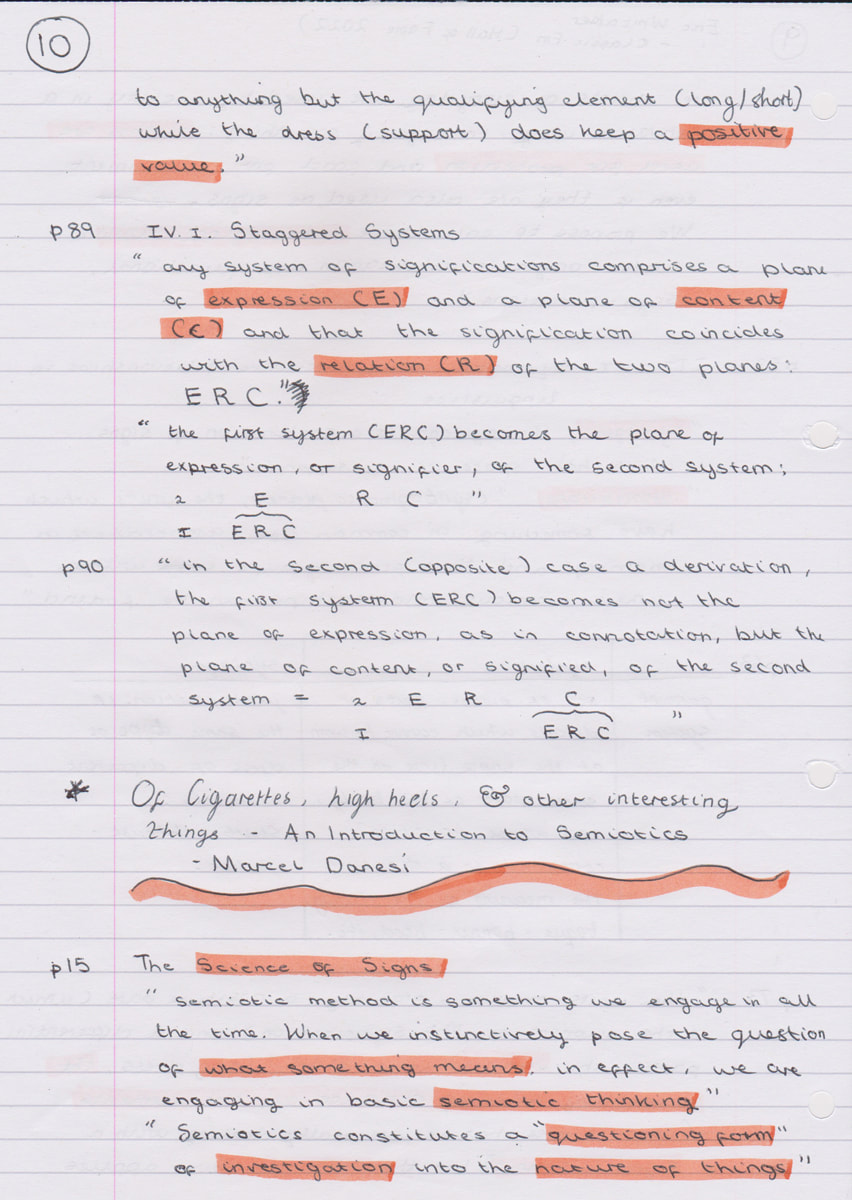 10
to anything but the qualifying element (long/short)
while the dress (support) does keep a positive
value."
p89 IV.I. Staggered Systems
" any system of significations comprises a plane
of expression (E) and a plane of content
(C) and that the signification coincides
with the relation (R) of the two planes:
E R C."
" the first system (ERC) becomes the plane of
expression, or signifier, of the second system:
2 E R C "
I E R C
p90 " in the second (opposite) case a derivation,
the first system (ERC) becomes not the
plane of expression, as in connotation, but the
plane of content, or signified, of the second
system = 2 E R C
I E R C "
* Of Cigarettes, high heels, & other interesting
things - An Introduction to Semiotics
- Marcel Danesi
p15 The Science of Signs
" semiotic method is something we engage in all
the time. When we instinctively pose the question
of what something means, in effect, we are
engaging in basic semiotic thinking "
" Semiotics constitutes a "questioning form"
of investigation into the nature of things "